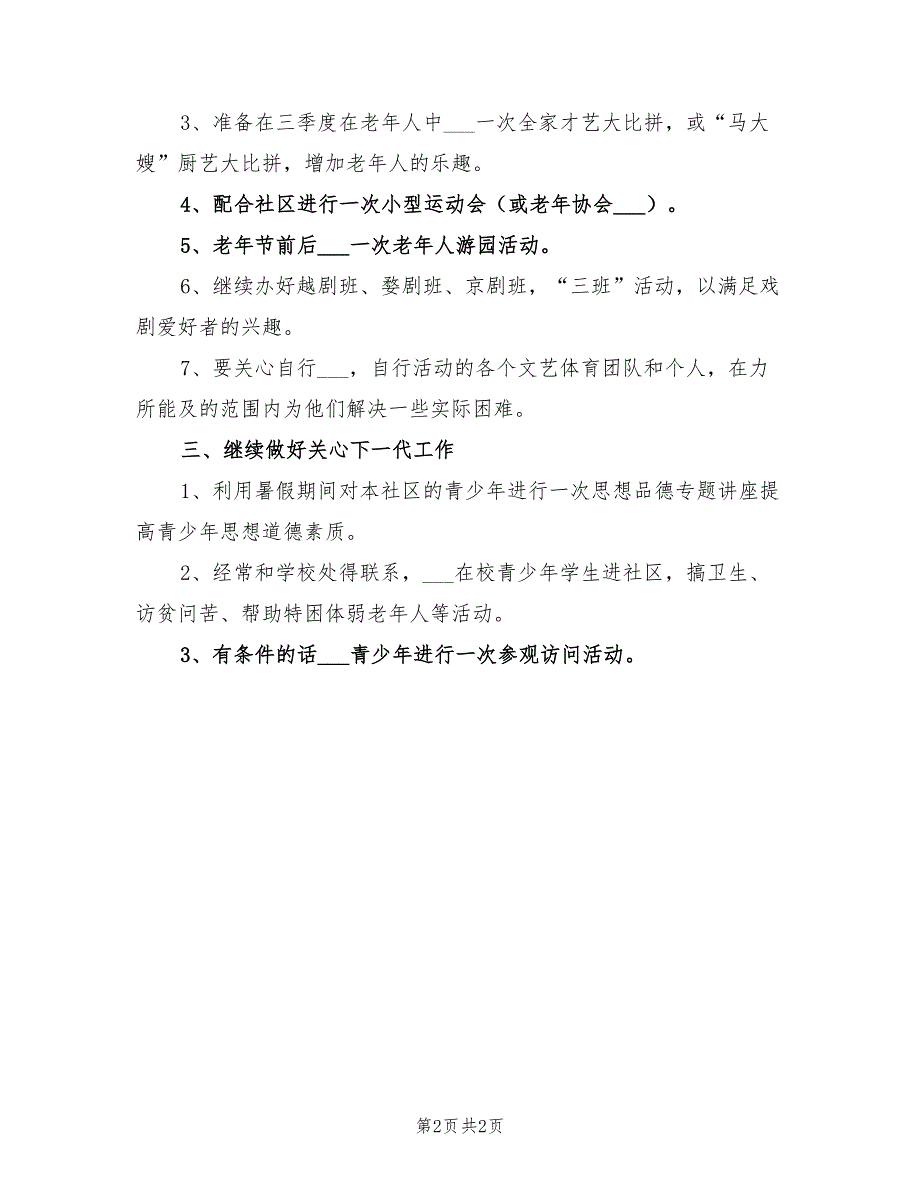 3、准备在三季度在老年人中___一次全家才艺大比拼，或“马大
嫂”厨艺大比拼，增加老年人的乐趣。
4、配合社区进行一次小型运动会（或老年协会___）。
5、老年节前后___一次老年人游园活动。
6、继续办好越剧班、婺剧班、京剧班，“三班”活动，以满足戏
剧爱好者的兴趣。
7、要关心自行___，自行活动的各个文艺体育团队和个人，在力
所能及的范围内为他们解决一些实际困难。
三、继续做好关心下一代工作
1、利用暑假期间对本社区的青少年进行一次思想品德专题讲座提
高青少年思想道德素质。
2、经常和学校处得联系，___在校青少年学生进社区，搞卫生、
访贫问苦、帮助特困体弱老年人等活动。
3、有条件的话___青少年进行一次参观访问活动。
第2页 共2页